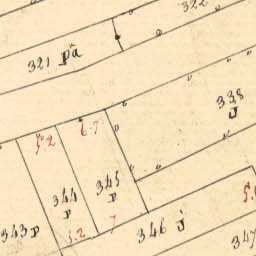 322
321 pa
338
J
5.2
6.7
344
p
345
p
343 p
5.2
7
346 J
347